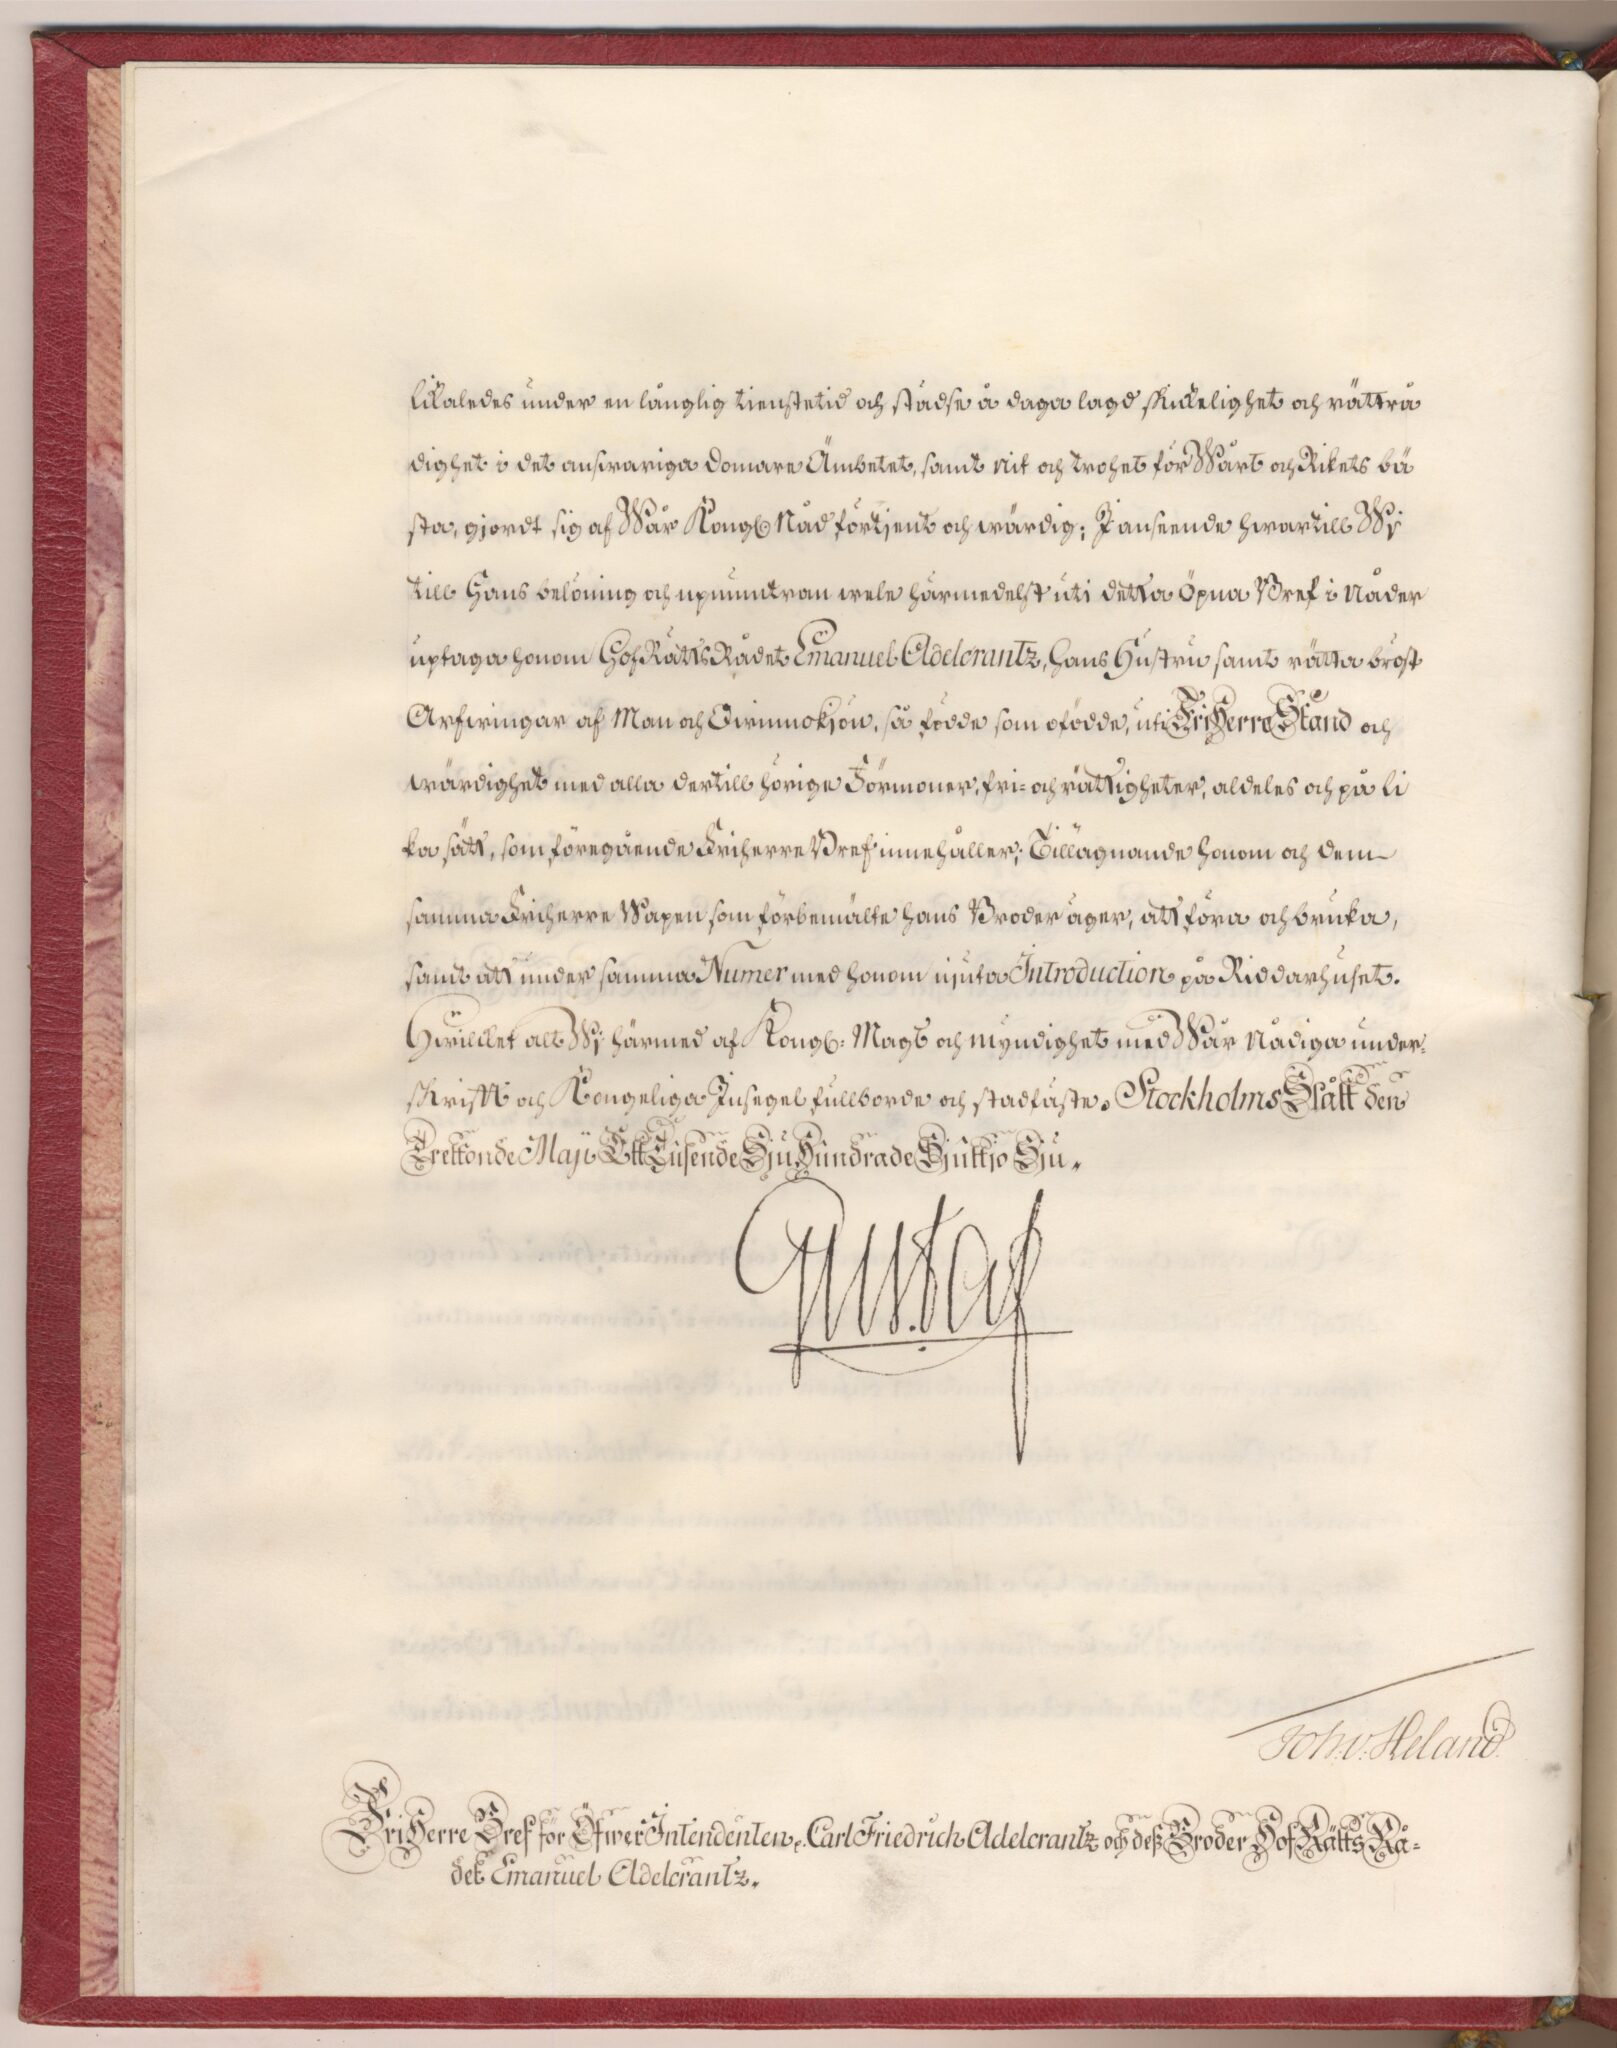 likaledes under en långlig tienstetid och städse å daga lagd skickelighet och rättrå
dighet i det answariga Domare Ämbetet, samt nit och trohet för Wårt och Rikets bä
sta, gjordt sig af Wår Kongl Nåd förtjent och wärdig; I anseende hwartill Wj
till Hans belöning och upmuntran wele härmedelst uti detta Öpna Bref i Nåder
uptaga honom HofRättsRådet Emanuel Adelcrantz, hans Hustru samt rätta bröst
Arfwingar af Man och Qwinnokjön, så födde som ofödde, uti FriHerre Stånd och
wärdighet med alla dertill hörige Förmoner, fri- och rättigheter, aldeles och på li
ka sätt, som föregående Friherre Bref innehåller; Tillägnande honom och dem
samma Friherre Wapen som förbemälte hans Broder äger, att föra och bruka,
samt att under samma Numer med honom njuta Introduction på Riddarhuset.
Hwilcket alt Wj härmed af Kongl: Magt och myndighet med Wår Nådiga under-
skrift och Kongeliga Insegel fullborde och stadfäste. Stockholms Slått den
Trettonde Maji Ett Tusende Sju Hundrade Sjuttjo Sju.
Gustaf
Joh. v. Heland.
FriHerre Bref för Öfwer Intendenten. Carl Friedrich Adelcrantz och deß Broder HofRätts Rå-
det Emanuel Adelcrantz.